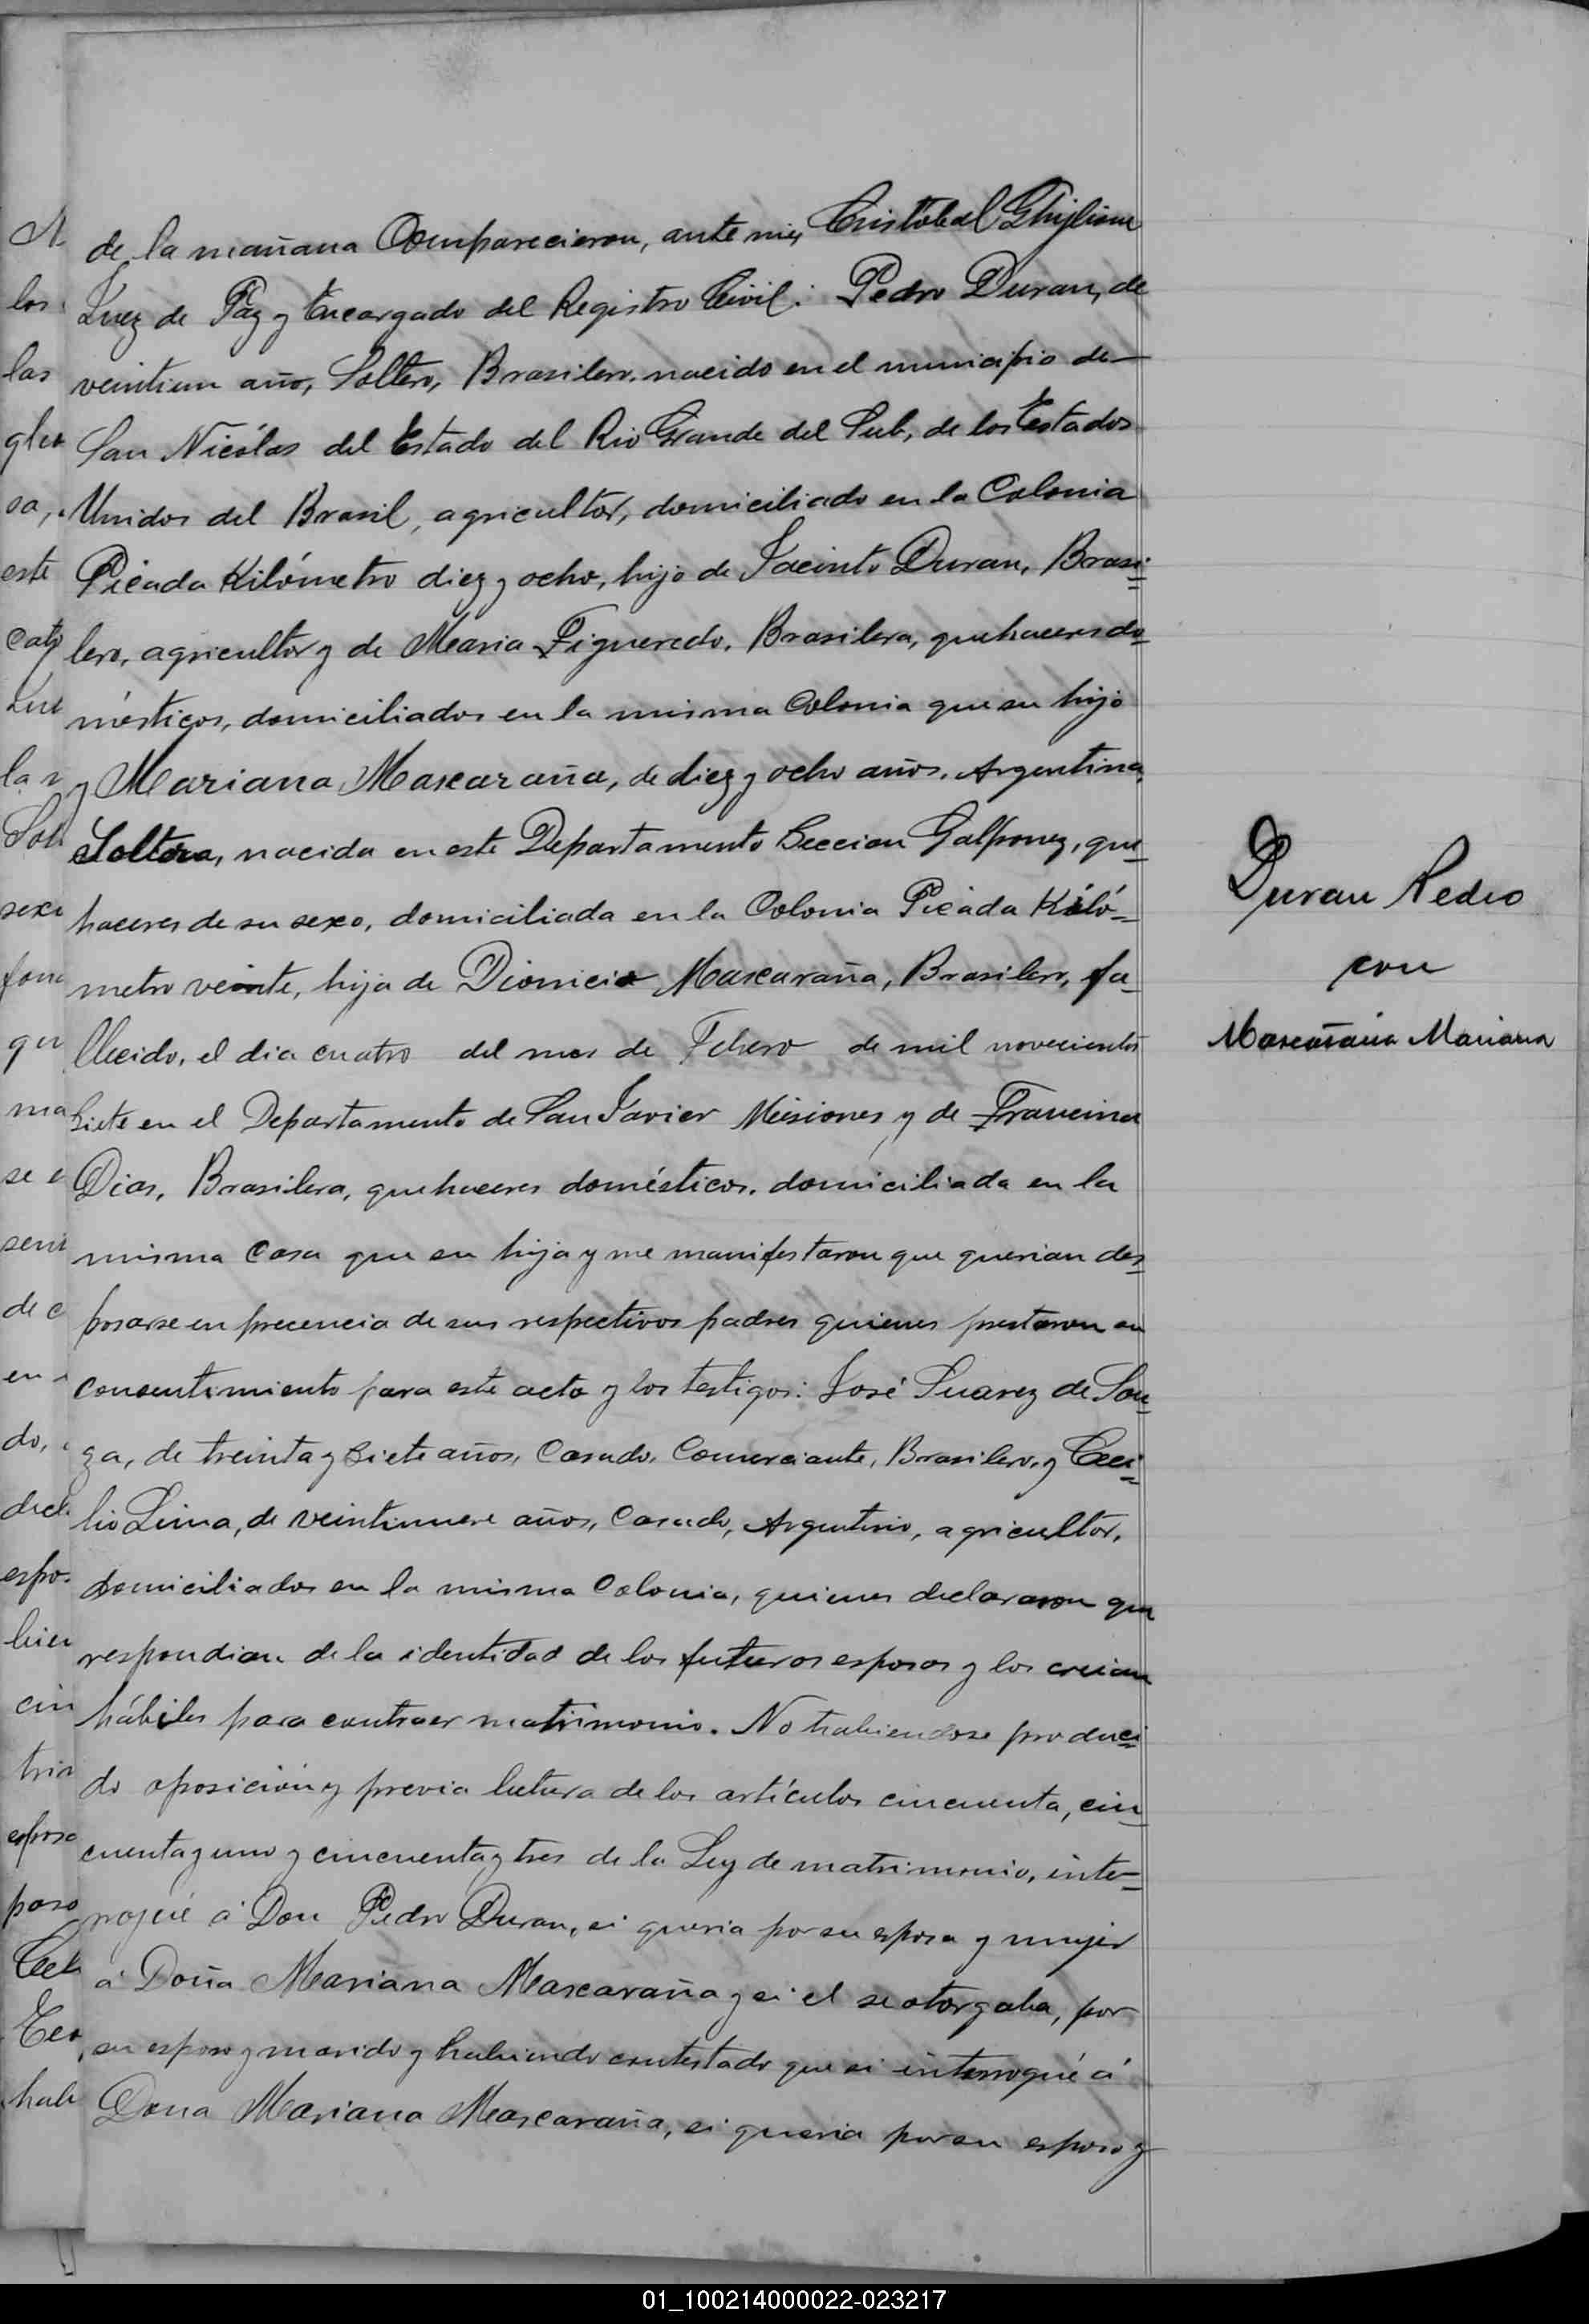 de la mañana Comparecieron, ante mi, Cristobal Ghiglione
Juez de Paz y Encargado del Registro Civil: Pedro Duran, de
veintiun año, Soltero, Brasilero, nacido en el municipio de
San Nicólas del Estado del Rio Grande del Sub, de los Estados
Unidos del Brasil, agricultor, domiciliado en la Colonia
Picada Kilómetro diez y ocho, hijo de Jacinto Duran, Brasi=
lero, agricultor y de Maria Figueredo, Brasilera, quehaceres do-
mésticos, domiciliados en la misma Colonia que su hijo
y Mariana Mascaraña, de diez y ocho años, Argentina,
Soltera, nacida en este Departamento Seccion Galpones, que-
haceres de su sexo, domiciliada en la Colonia Picada Kiló=
metro veinte, hija de Dionicio Mascaraña, Brasilero, fa-
llecido, el dia cuatro del mes de Febrero de mil novecientos
Siete en el Departamento de San Javier Misiones y de Francina
Dias, Brasilera, quehaceres domésticos, domiciliada en la
misma Casa que su hija y me manifestaron que querian des-
posarse en precencia de sus respectivos padres quienes prestaron su
consentimiento para este acto y los testigos: José Suarez de Sou-
za, de treinta y siete años, Casado, Comerciante, Brasilero, y Ceci=
lio Lima, de veintinueve años, Casado, Argentino, agricultor,
domiciliados en la misma Colonia, quienes declararon que
respondian de la identidad de los futuros esposos y los creian
hábiles para contraer matrimonio. No habiendose produci=
do oposición y previa lectura de los artículos cincuenta, cin-
cuenta y uno y cincuenta y tres de la Ley de matrimonio, inte=
rrogué á Don Pedro Duran, si queria por su esposa y mujer
á Doña Mariana Mascaraña y si el se otorgaba, por
su esposo y marido y habiendo contestado que si interrogué á
Dona Mariana Mascaraña, si queria por su esposo y
Duran Pedro
con
Mascaraña Mariana
01_100214000022-023217